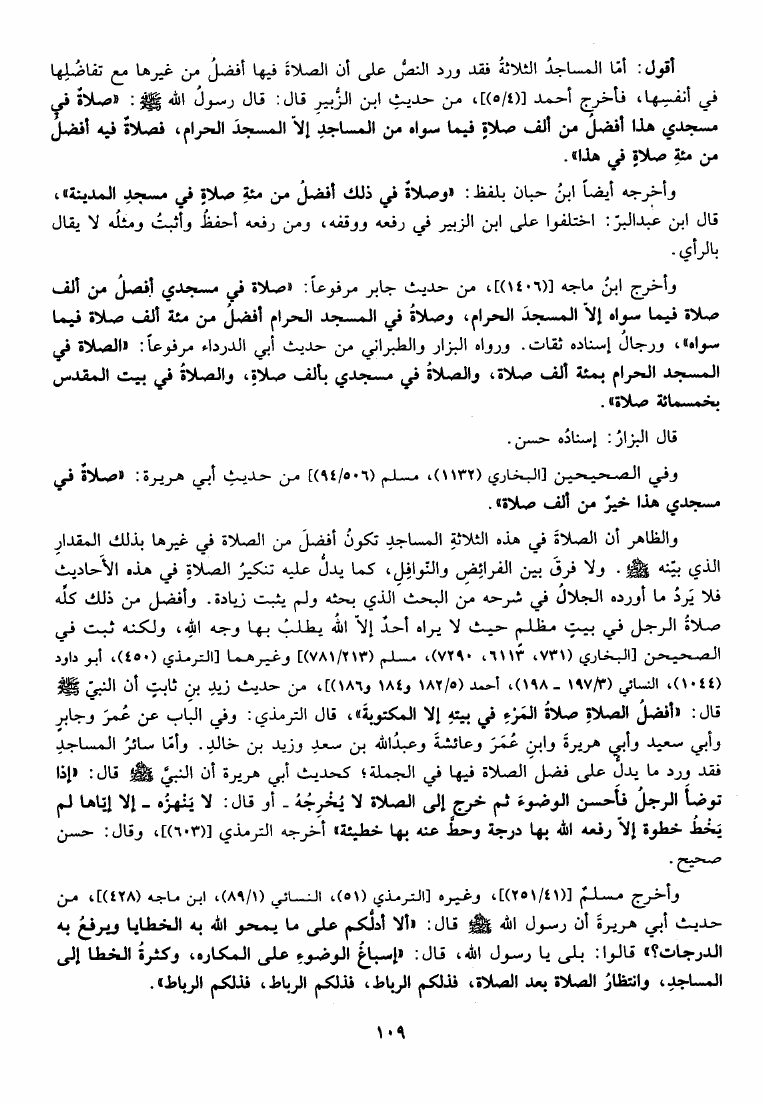 أقول: أمّا المساجدُ الثلاثةُ فقد ورد النصُّ على أن الصلاةَ فيها أفضلُ من غيرها مع تفاضُلِها
في أنفسِها، فأخرج أحمد [(٥/٤)]، من حديثِ ابن الزُّبيرِ قال: قال رسولُ الله ﷺ: «صلاةٌ في
مسجدي هذا أفضلُ من ألف صلاةٍ فيما سواه من المساجدِ إلاّ المسجدَ الحرام، فصلاةٌ فيه أفضلُ
من مئةِ صلاةٍ في هذا».
وأخرجه أيضاً ابنُ حبان بلفظ: «وصلاةٌ في ذلك أفضلُ من مئةِ صلاةٍ في مسجدِ المدينة»،
قال ابن عبدالبرّ: اختلفوا على ابن الزبير في رفعه ووقفه، ومن رفعه أحفظُ وأثبتُ ومثلُه لا يقال
بالرأي.
وأخرج ابنُ ماجه [(١٤٠٦)]، من حديث جابر مرفوعاً: «صلاة في مسجدي أفضلُ من ألف
صلاة فيما سواه إلاّ المسجدَ الحرام، وصلاةُ في المسجد الحرام أفضلُ من مئة ألف صلاة فيما
سواه»، ورجالُ إسناده ثقات. ورواه البزار والطبراني من حديث أبي الدرداء مرفوعاً: «الصلاة في
المسجد الحرام بمئة ألف صلاة، والصلاةُ في مسجدي بألف صلاةٍ، والصلاةُ في بيت المقدس
بخمسمائة صلاة».
قال البزارُ: إسنادُه حسن.
وفي الصحيحين [البخاري (١١٣٢)، مسلم (٩٤/٥٠٦)] من حديثِ أبي هريرة: «صلاةٌ في
مسجدي هذا خيرٌ من ألف صلاة».
والظاهر أن الصلاةَ في هذه الثلاثةِ المساجدِ تكونُ أفضلَ من الصلاة في غيرها بذلك المقدارِ
الذي بيّنه ﷺ. ولا فرقَ بين الفرائِضِ والنّوافلِ، كما يدلُّ عليه تنكيرُ الصلاةِ في هذه الأحاديث
فلا يَرِدُ ما أورده الجلالُ في شرحه من البحث الذي بحثه ولم يثبت زيادة. وأفضل من ذلك كلِّه
صلاةُ الرجل في بيتٍ مظلم حيث لا يراه أحدٌ إلاّ اللهُ يطلبُ بها وجه اللهِ، ولكنه ثبت في
الصحيحن [البخاري (٧٣١، ٦١١٣، ٧٢٩٠)، مسلم (٧٨١/٢١٣)] وغيرهما [الترمذي (٤٥٠)، أبو داود
(١٠٤٤)، النسائي (١٩٧/٣ - ١٩٨)، أحمد (١٨٢/٥ و١٨٤ و١٨٦)]، من حديث زيدِ بنِ ثابتٍ أن النبيّ ﷺ
قال: «أفضلُ الصلاةِ صلاةُ المَرْءِ في بيتِهِ إلا المكتوبةَ»، قال الترمذي: وفي الباب عن عُمرَ وجابرٍ
وأبي سعيد وأبي هريرةَ وابنِ عُمَرَ وعائشةَ وعبدُالله بن سعدٍ وزيد بن خالدٍ. وأمّا سائرُ المساجدِ
فقد ورد ما يدلُّ على فضل الصلاة فيها في الجملة؛ كحديث أبي هريرة أن النبيَّ ﷺ قال: «إذا
توضأَ الرجلُ فأحسن الوضوءَ ثم خرج إلى الصلاة لا يُخْرِجُهُ ـ أو قال: لا يَنْهزُه ـ إلا إيّاها لم
يَخْطُ خطوة إلاّ رفعه الله بها درجة وحطَّ عنه بها خطيئة» أخرجه الترمذي [(٦٠٣)]، وقال: حسن
صحيح.
وأخرج مسلمٌ [(٢٥١/٤١)]، وغيره [الترمذي (٥١)، النسائي (٨٩/١)، ابن ماجه (٤٢٨)]، من
حديث أبي هريرةَ أن رسول الله ﷺ قال: «ألا أدلُّكم على ما يمحو الله به الخطايا ويرفعُ به
الدرجات؟» قالوا: بلى يا رسول الله، قال: «إسباغُ الوضوءِ على المكاره، وكثرةُ الخطا إلى
المساجدِ، وانتظارُ الصلاة بعد الصلاة، فذلكم الرباط، فذلكم الرباط، فذلكم الرباط».
١٠٩